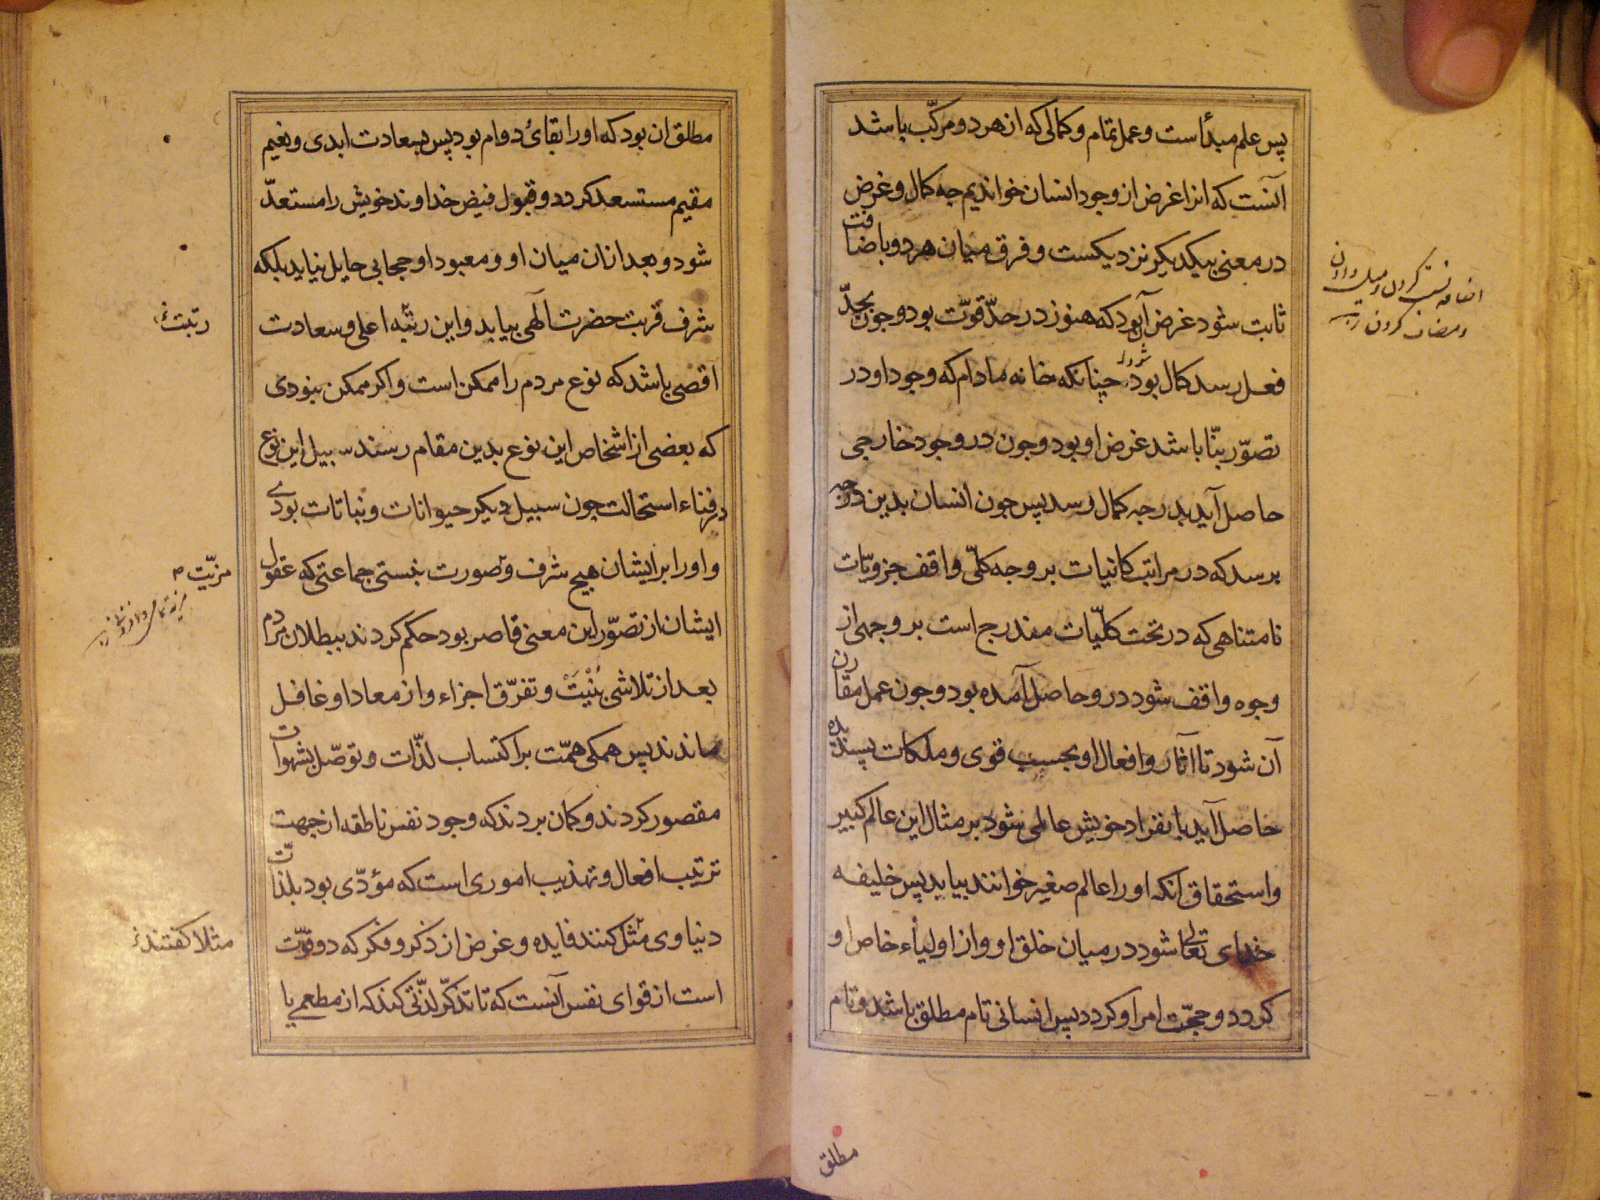 پس علم مبدأ است و عمل تمام و کمالی که از هر دو مرکّب باشد
آنست که انرا غرض از وجود انسان خواندیم جه کمال و غرض
در معنی بیکدیکر نزدیکست و فرق میان هر دو باضافت
ثابت شود غرض آن بود که هنوز در حدّ قوّت بود و جون بحدّ
فعل رسد کمال بود جنانکه خانه مادام که وجود او در
تصوّر بنّا باشد غرض او بود و جون در وجود خارجی
حاصل آید بدرجه کمال رسد پس جون انسان بدین درجه
برسد که در مراتب کائنات بر وجه کلّی واقف جزویّات
نامتناهی که در تحت کلّیات مندرج است بر وجهی از
وجوه واقف شود در و حاصل آمده بود و جون عمل مقارن
آن شود تا آثار و افعال او بحسب قوی و ملکات پسندیده
حاصل آید بانفراد خویش عالمی شود بر مثال این عالم کبیر
و استحقاق آنکه او را عالم صغیر خوانند بیابد پس خلیفه
خدای تعالی شود در میان خلق او و از اولیاء خاص او
کردد و حجّت امر او کردد پس انسانی تام مطلق باشد و تام
مطلق
اضافه نسبت کردن و میل دادن
و مضاف کردن
مطلق ان بود که او را بقای دوام بود پس بسعادت ابدی و نعیم
مقیم مستسعد کردد و قبول فیض خداوند خویش را مستعدّ
شود و بعد ازان میان او و معبود او حجابی حایل نیاید بلکه
شرف قربت حضرت آلهی بیابد و این رتبه اعلی و سعادت
اقصی باشد که نوع مردم را ممکن است و اکر ممکن نبودی
که بعضی از اشخاص این نوع بدین مقام رسند سبیل این نوع
در فناء استحالت جون سبیل دیکر حیوانات و نباتات بودی
و او را بر ایشان هیچ شرف و تصورت نبستی جماعتی که عقول
ایشان از تصوّر این معنی قاصر بود حکم کردند ببطلان مردم
بعد از تلاشی بُنْیَتْ و تفرّق اجزاء و از معاد او غافل
ماندند پس همکی همّت بر اکتساب لذّات و توصّل بشهوات
مقصور کردند و کمان بردند که وجود نفس ناطقه از جهت
ترتیب افعال و تهذیب اموری است که مؤدّی بود بلذّات
دنیاوی مثل کنند فایده و غرض از ذکر و فکر که دو قوّت
است از قوای نفس آنست که تا تذکّر لذّتی کند که از مطعمی یا
رتبت
مزیّت
مثلا کفتند